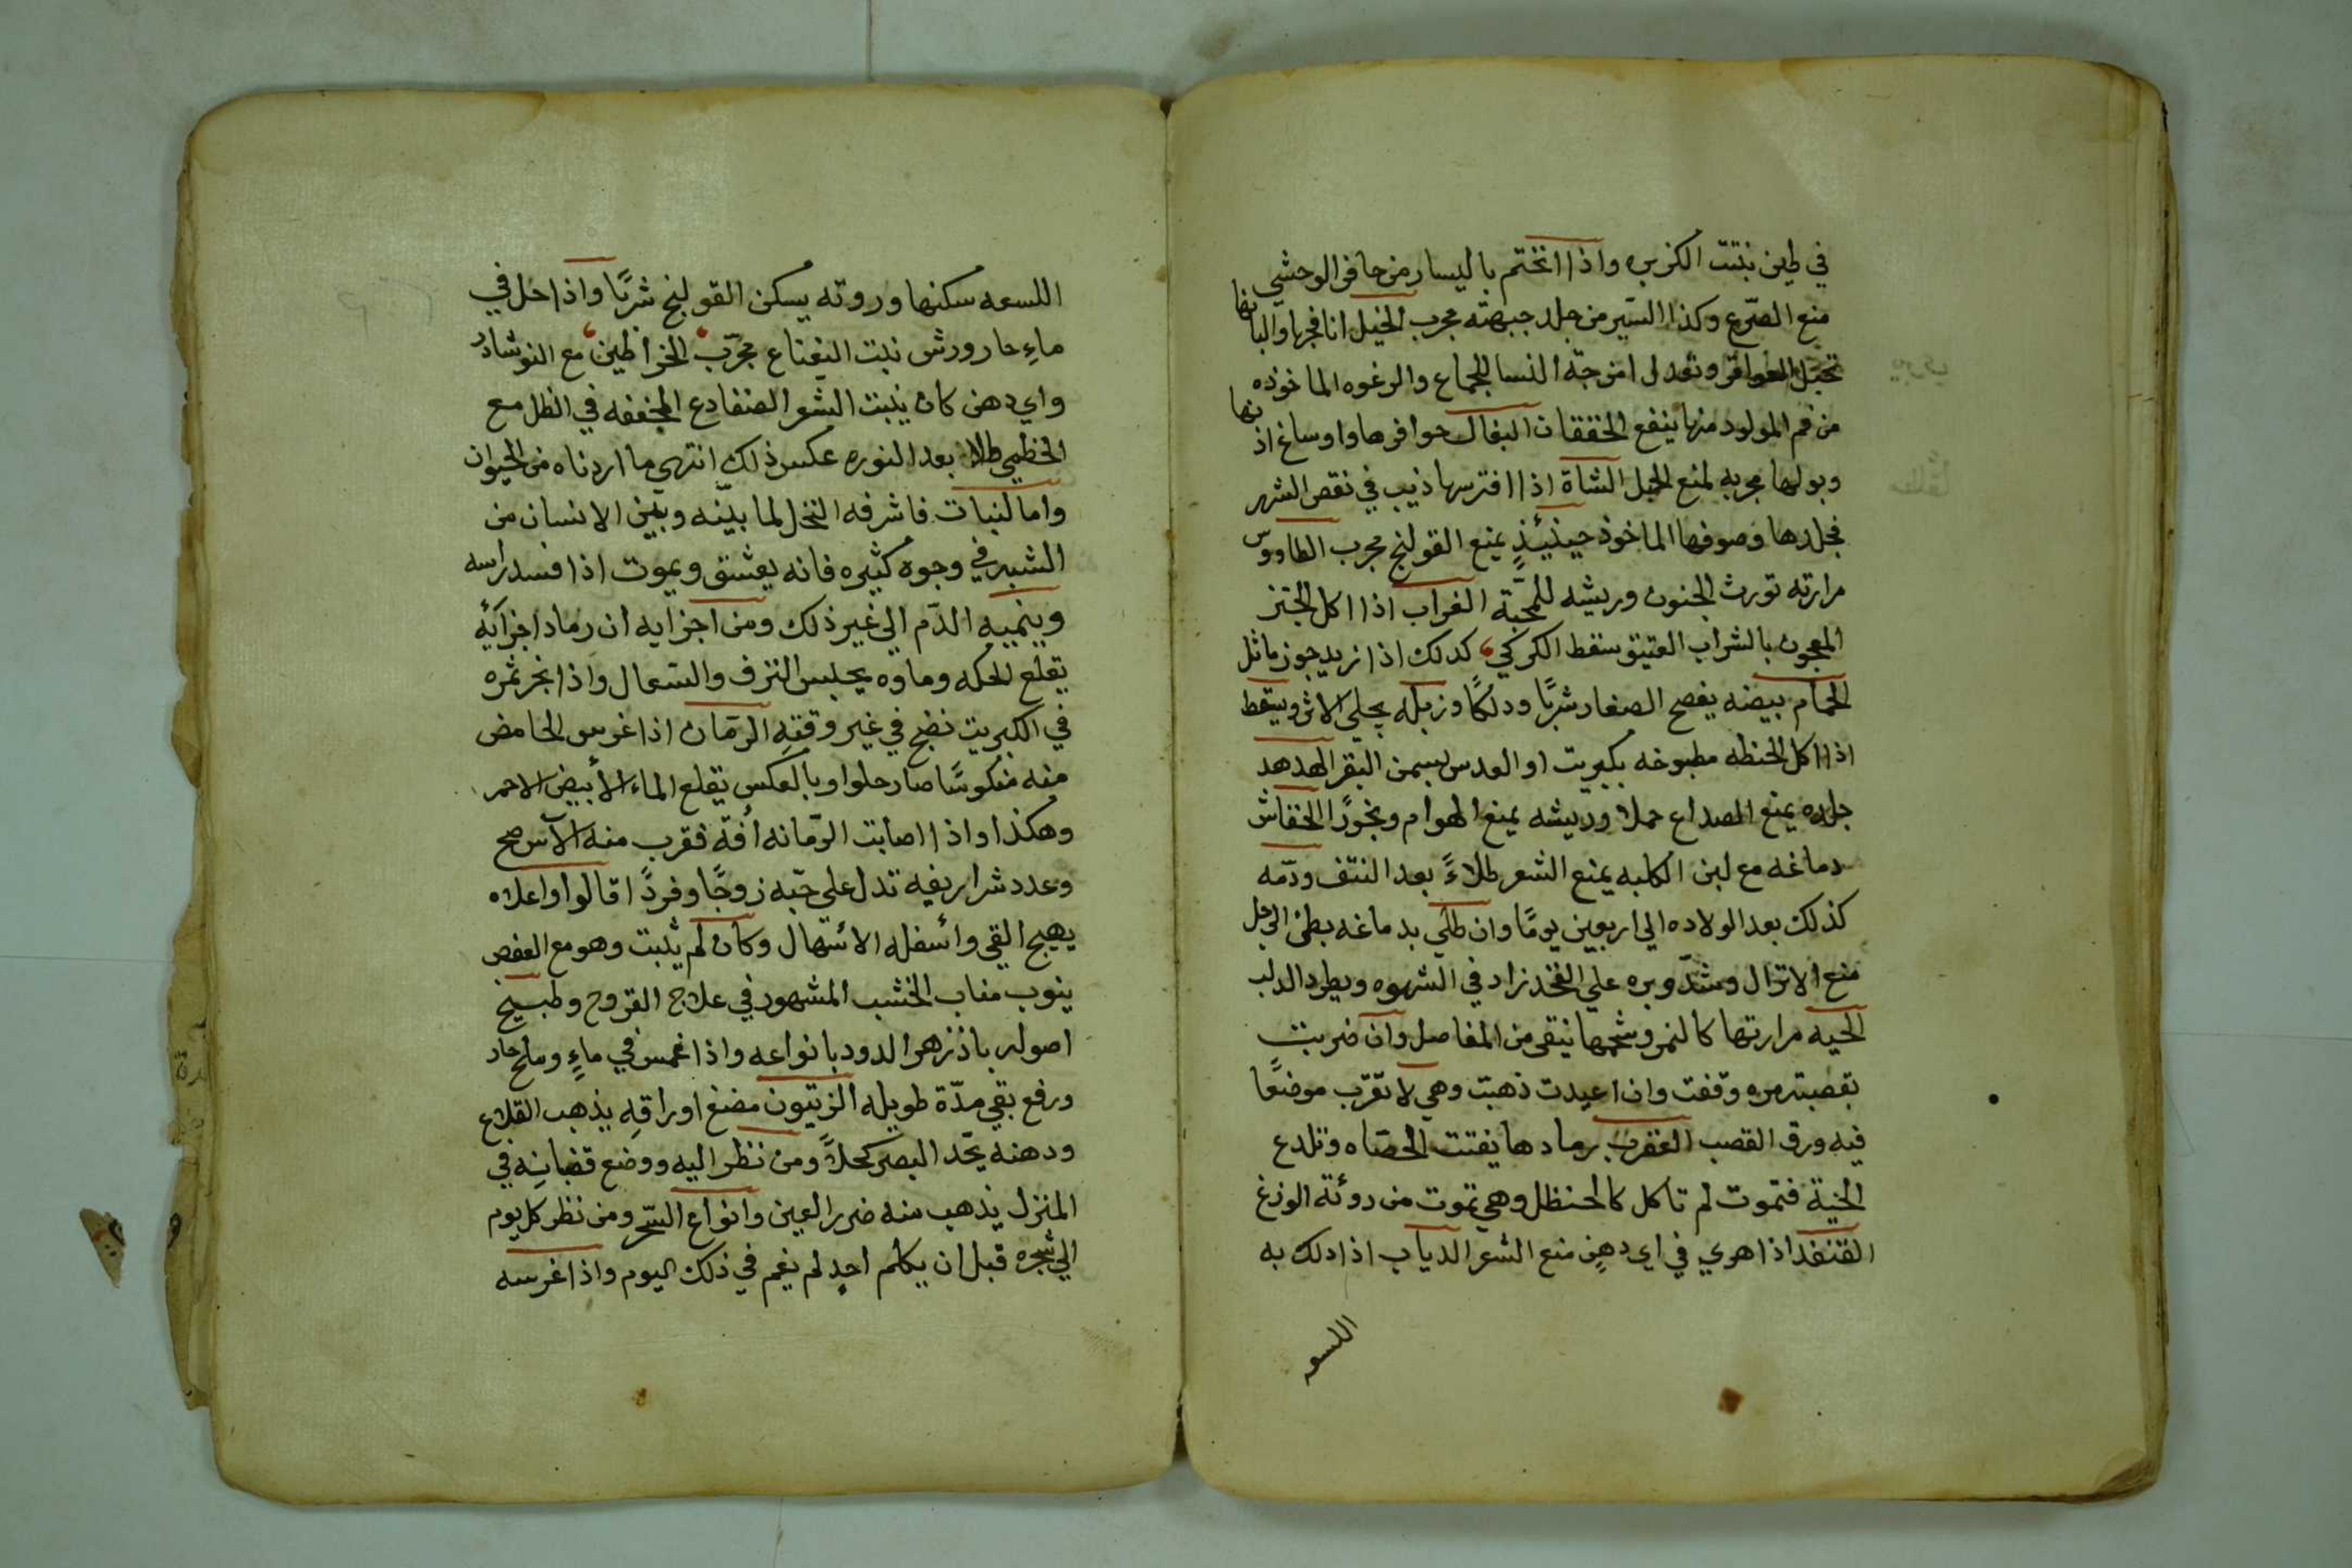 في طين نبتت الكزبره واذا اتختم باليسار من حافر الوحشي
منع الصرع وكذا السير من جلد جبهته مجرب الخيل انا فجرها والبانها
تحبل العواقر وتعدل امزجة النسا للجماع والرغوه الماخوذه
من فم المولود منها ينفع الخفقان البغال حوافرها واوساغ اذنها
وبولها مجربه لمنع الحبل الشاة اذا افترسها ذيب في نقص الشهر
فجلدها وصوفها الماخوذ حينئيذٍ يمنع القولنج مجرب الطاووس
مرارته تورث الجنون وريشه للمحبّة الغراب اذا اكل الخبز
المعجون بالشراب العتيق سقط الكركي كدلك اذا زيد جوز ماثل
الحمام بيضه يفصح الصغار شربًا ودلكًا وزبله يجلي الاثر ويسقط
اذا اكل الحنطه مطبوخه بكبريت او العدس بسمن البقر الهدهد
جلده يمنع الصداع حملا وريشه يمنع الهوام وبخورًا الخفاش
دماغه مع لبن الكلبه يمنع الشعر طلاءً بعد النتف ودمّه
كذلك بعد الولاده الي اربعين يومًا وان طلي بدماغه بطن الرجل
منع الانزال وشدّ وبره علي الفخد زاد في الشهوه ويطرد الدلب
الحيه مرارتها كالنمر وشحمها ينقي من المفاصل وان ضربت
بقصبته مره وقفت وان اعيدت ذهبت وهي لا تقرّب موضعًا
فيه ورق القصب العقرب رمادها يفتت الحصّاه وتلدع
الحية فتموت لم تاكل كالحنظل وهي تموت من روئة الوزغ
القنفد اذا هري في اي دهنٍ منع الشعر الدياب اذا دلك به
اللسو
اللسعه سكنها وروته يسكن القولنج شربًا واذا حل في
ماءٍ حار ورش نبت النعناع مجرّب الخراطين مع النوشادر
واي دهن كان ينبت الشعر الضفادع المجففه في الظل مع
الخطمي طلا بعد النوره عكس ذلك انتهي ما اردناه من الحيوان
واما لنبات فاشرفه النخل لما بينه وبين الانسان من
الشبه في وجوه كثيره فانه يعشق ويموت اذا فسد راسه
وينميه الدّم الي غير ذلك ومن اجزايه ان رماد اجزآئه
يقلع الحكه وماوه يحبس النزف والسعال واذا بخر ثمره
في الكبريت نضج في غير وقته الرمّان اذا غرس الحامض
منه منكوسًا صار حلوا وبالعكس يقلع الماء الأبيض الاحمر
وهكذا واذا اصابت الرّمانه أفة فقرب منه الآس صح
وعدد شراريفه تدل علي حبّه زوجًا وفردًا قالوا واعلاه
يهيج القي وأسفله الاسهال وكان لم يثبت وهو مع العفص
ينوب مناب الخشب المشهور في علاج القروح وطبيخ
اصوله باذزهر الدود بانواعه واذا غمس في ماءٍ وملح حار
ورفع بقي مدّة طويله الزيتون مضغ اوراقِه يذهب القلاع
ودهنه يحّد البصر كحلاً ومن نظر اليه ووضع قضبانِه في
المنزل يذهب منه ضرر العين وانواع السّحر ومن نظر كل يوم
الي شجره قبل ان يكلم احدٍ لم يغم في ذلك اليوم واذا غرسه